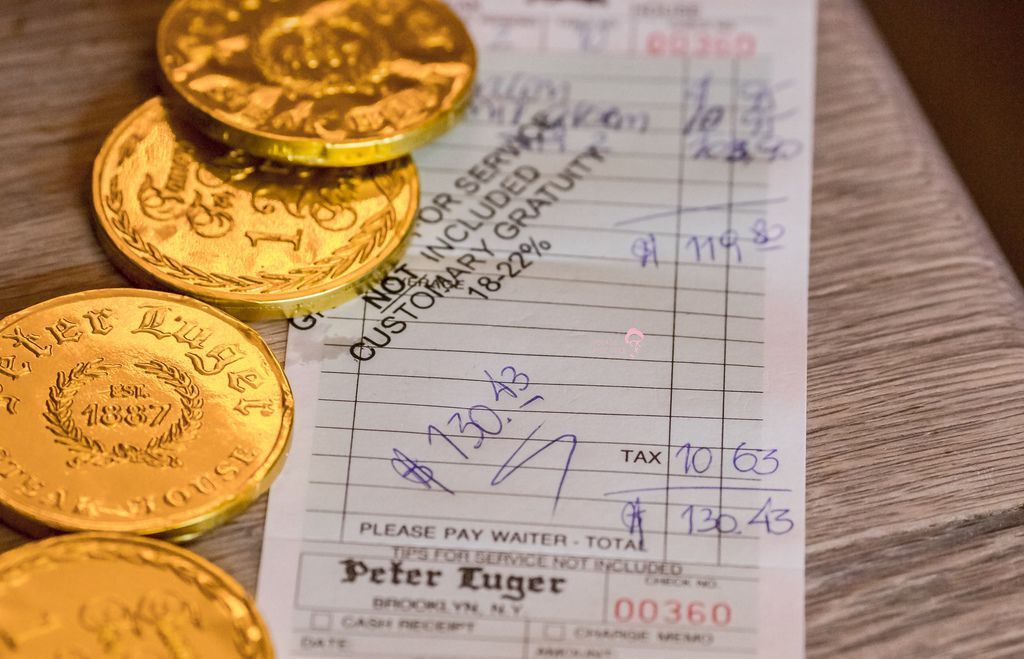 00360
95
10 95
$ 119.80
FOR SERVICE
NOT INCLUDED
CUSTOMARY GRATUITY
18-22%
$ 130.43
TAX 10 63
$ 130.43
PLEASE PAY WAITER - TOTAL
TIPS FOR SERVICE NOT INCLUDED
Peter Luger
BROOKLYN, N.Y.
CHECK NO.
00360
CASH RECEIPT
CHARGE MEMO
DATE:
AMOUNT:
Peter Luger
EST.
1887
STEAK HOUSE